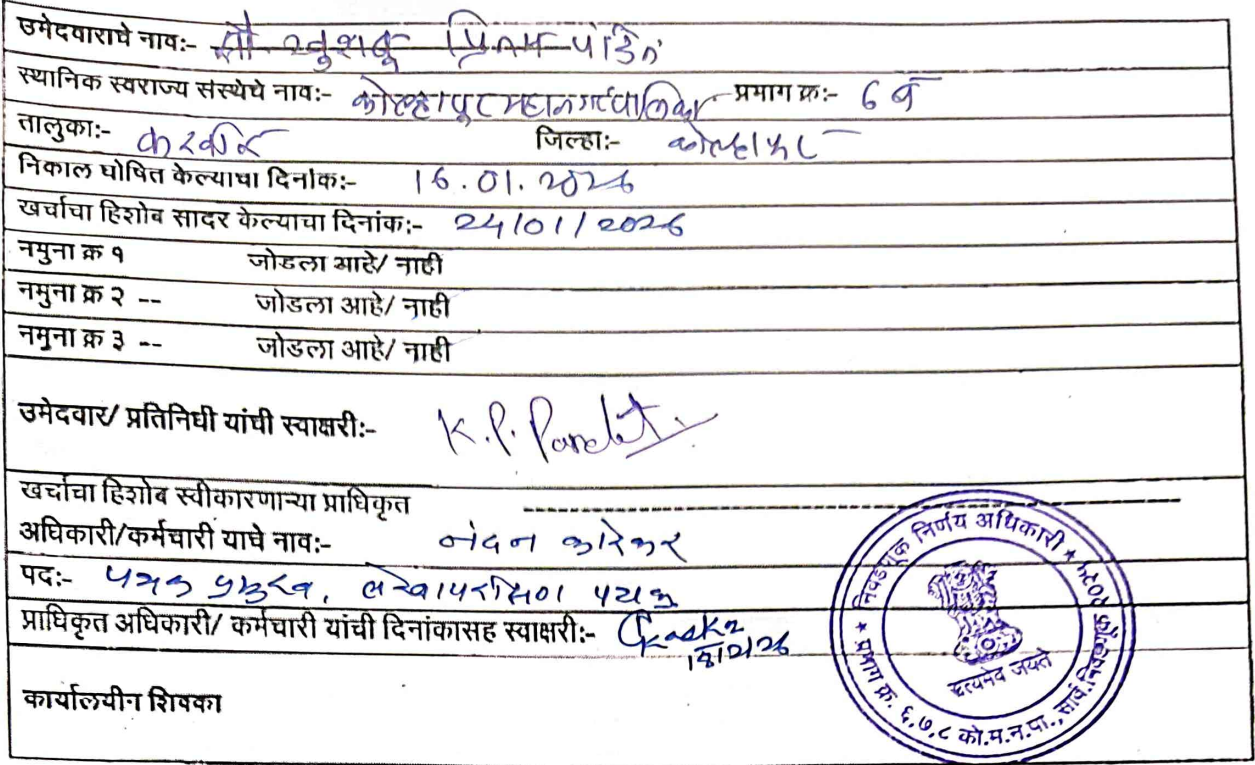 उमेदवाराचे नाव:- सौ खुशबू प्रिन्स पंडित
स्थानिक स्वराज्य संस्थेचे नाव:- कोल्हापूर महानगरपालिका प्रभाग क्र:- 6 ब
तालुका:- करवीर जिल्हा:- कोल्हापूर
निकाल घोषित केल्याचा दिनांक:- 16.01.2026
खर्चाचा हिशोब सादर केल्याचा दिनांक:- 24/01/2026
नमुना क्र १ जोडला आहे/ नाही
नमुना क्र २ -- जोडला आहे/ नाही
नमुना क्र ३ -- जोडला आहे/ नाही
उमेदवार/ प्रतिनिधी यांची स्वाक्षरी:- K.P. Pandit
खर्चाचा हिशोब स्वीकारणाऱ्या प्राधिकृत
अधिकारी/कर्मचारी याचे नाव:- नंदन कारेकर
पद:- पथक प्रमुख, लेखापरिक्षण पथक
प्राधिकृत अधिकारी/ कर्मचारी यांची दिनांकासह स्वाक्षरी:-
कार्यालयीन शिक्का
* निवडणूक निर्णय अधिकारी *
प्रभाग क्र. ६,७,८ को.म.न.पा., सार्व.निवडणूक २०२५
सत्यमेव जयते